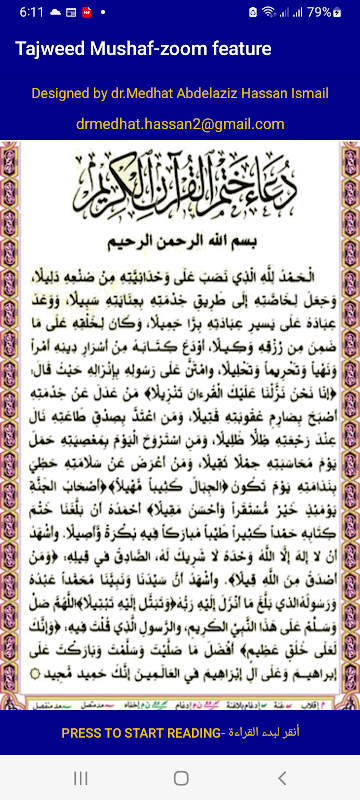 6:11
79%
Tajweed Mushaf-zoom feature
Designed by dr.Medhat Abdelaziz Hassan Ismail
drmedhat.hassan2@gmail.com
دُعَاءُ خَتْمِ الْقُرْآنِ الْكَرِيمِ
بسم الله الرحمن الرحيم
الْحَمْدُ لِلَّهِ الَّذِي نَصَبَ عَلَى وَحْدَانِيَّتِهِ مِنْ صُنْعِهِ دَلِيلًا،
وَجَعَلَ لِخَاصَّتِهِ إِلَى طَرِيقِ خِدْمَتِهِ بِعِنَايَتِهِ سَبِيلًا، وَوَعَدَ
عِبَادَهُ عَلَى يَسِيرِ عِبَادَتِهِ بِرًّا جَمِيلًا، وَكَانَ لِخَلْقِهِ عَلَى مَا
ضَمِنَ مِن رِزْقِهِ وَكِيلًا، أَوْدَعَ كِتَابَهُ مِنْ أَسْرَارِ دِينِهِ أَمْراً
وَنَهْياً وَتَحْرِيماً وَتَحْلِيلًا، وَامْتَنَّ عَلَى رَسُولِهِ بِإِنْزَالِهِ حَيْثُ قَالَ:
﴿إِنَّا نَحْنُ نَزَّلْنَا عَلَيْكَ الْقُرْءَانَ تَنْزِيلًا﴾ مَنْ عَدَلَ عَنْ خِدْمَتِهِ
أَصْبَحَ بِصَارِمِ عُقُوبَتِهِ قَتِيلًا، وَمَنِ اعْتَدَّ بِصِدْقِ طَاعَتِهِ نَالَ
عِنْدَ رَجْعَتِهِ ظِلًّا ظَلِيلًا، وَمَنِ اسْتَرْوَحَ الْيَوْمَ بِمَعْصِيَتِهِ حَمَلَ
يَوْمَ مُحَاسَبَتِهِ حِمْلًا ثَقِيلًا، وَمَنْ أَعْرَضَ عَنْ سَلَامَتِهِ حَظِيَ
بِنَدَامَتِهِ يَوْمَ تَكُونُ ﴿الجِبَالُ كَثِيباً مَّهِيلًا﴾ ﴿أَصْحَابُ الجَنَّةِ
يَوْمَئِذٍ خَيْرٌ مُّسْتَقَرًّا وَأَحْسَنُ مَقِيلًا﴾ أَحْمَدُهُ أَنْ بَلَّغَنَا خَتْمَ
كِتَابِهِ حَمْداً كَثِيراً طَيِّباً مُبَارَكاً فِيهِ بُكْرَةً وَأَصِيلًا. وَأَشْهَدُ
أَنْ لَا إِلَهَ إِلَّا اللَّهُ وَحْدَهُ لَا شَرِيكَ لَهُ، الصَّادِقُ فِي قِيلِهِ، ﴿وَمَنْ
أَصْدَقُ مِنَ اللَّهِ قِيلًا﴾. وَأَشْهَدُ أَنَّ سَيِّدَنَا وَنَبِيَّنَا مُحَمَّداً عَبْدُهُ
وَرَسُولُهُ الَّذِي بَلَّغَ مَا أُنْزِلَ إِلَيْهِ رَبُّهُ ﴿وَتَبَتَّلْ إِلَيْهِ تَبْتِيلًا﴾ اللَّهُمَّ صَلِّ
وَسَلِّمْ عَلَى هَذَا النَّبِيِّ الكَرِيمِ، وَالرَّسُولِ الَّذِي قُلْتَ فِيهِ، ﴿وَإِنَّكَ
لَعَلَى خُلُقٍ عَظِيمٍ﴾ أَفْضَلَ مَا صَلَّيْتَ وَسَلَّمْتَ وَبَارَكْتَ عَلَى
إِبْرَاهِيمَ وَعَلَى آلِ إِبْرَاهِيمَ فِي العَالَمِينَ إِنَّكَ حَمِيدٌ مَجِيدٌ
م إقلاب غنة إدغام بلاغنة إدغام إخفاء مد متصل مد منفصل
PRESS TO START READING- أنقر لبدء القراءة